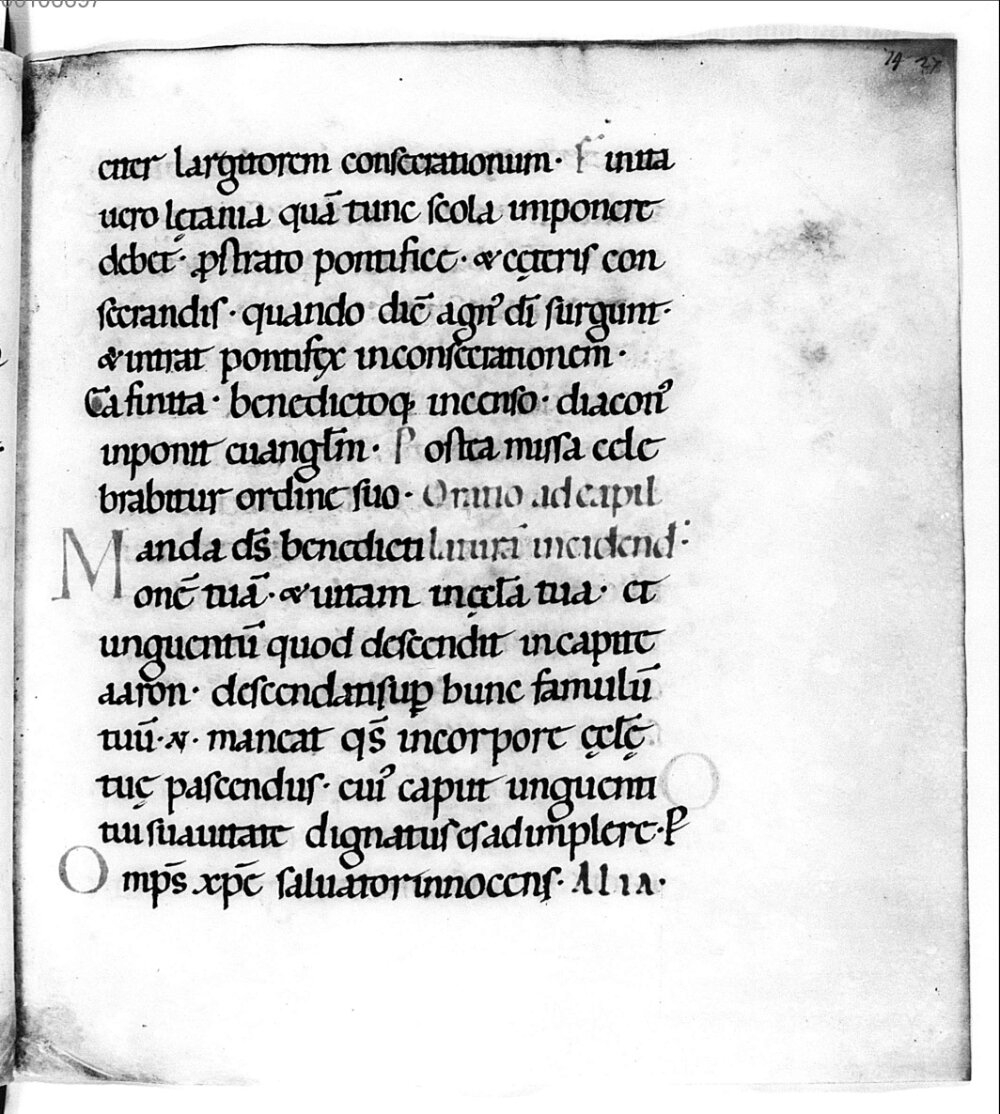 etter largitorem consecrationum· Finita
uero lętania quā tunc scola imponere
debet· ꝓstrato pontifice· & cęteris con
secrandis· quando dic̄ agn᾿ dī surgunt·
& intrat pontifęx inconsecrationem̄·
Ea finita· benedictoq; incenso· diacon᾿
inponit euangl̄m· Postea missa cele
brabitur ordine suo· Oratio ad capil
Manda dn̄s benedicti laturā incidend·
onē tuā· & uitam inęcclā tua· et
unguentū quod descendit incapite
aaron· descendansuꝑ hunc famulū
tuū·N· maneat qs̄ incorpore ęcclę
tuę pascendus· cui᾿ caput unguenti
tui suauitate dignatus es adimplere·P
Omps̄ xpē saluator innocens· ALIA·